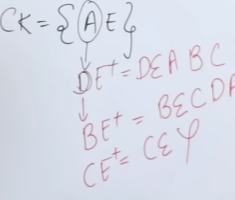 CK = { A E }
DE⁺ = DEABC
BE⁺ = BECDA
CE⁺ = CEφ